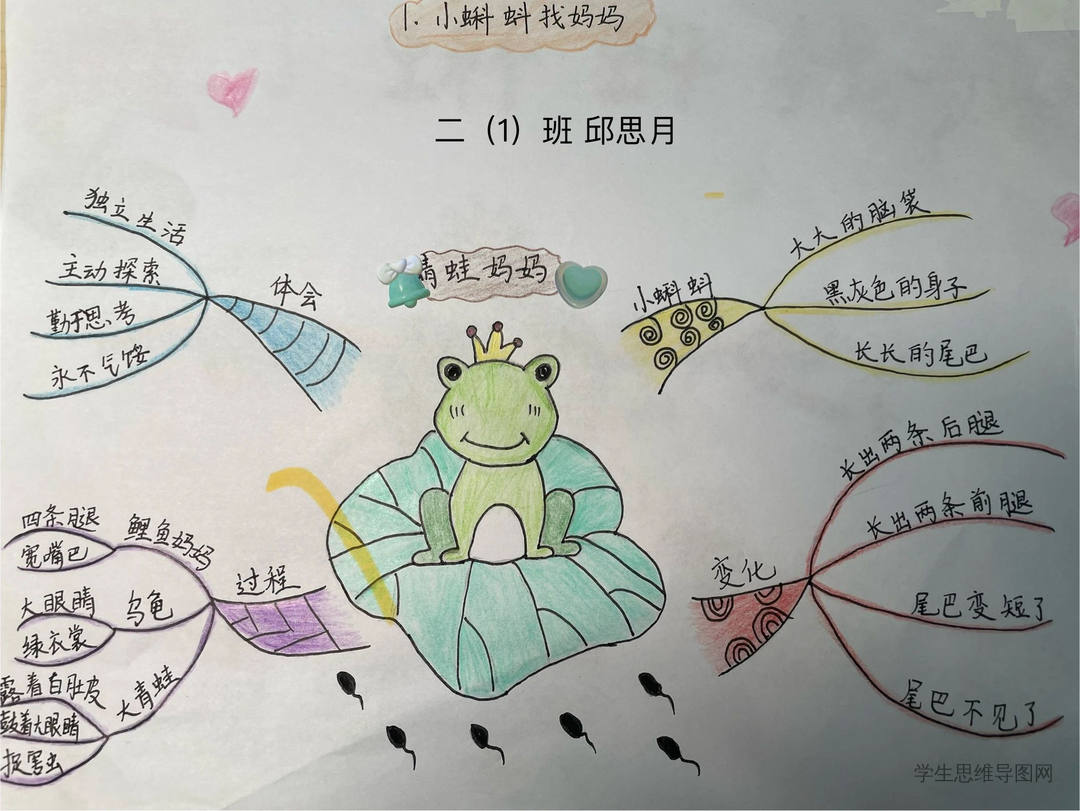 1.小蝌蚪找妈妈
二（1）班 邱思月
独立生活
主动探索
勤于思考
永不气馁
体会
青蛙妈妈
小蝌蚪
大大的脑袋
黑灰色的身子
长长的尾巴
四条腿
宽嘴巴
鲤鱼妈妈
大眼睛
绿衣裳
乌龟
露着白肚皮
鼓着大眼睛
捉害虫
大青蛙
过程
变化
长出两条后腿
长出两条前腿
尾巴变短了
尾巴不见了
学生思维导图网